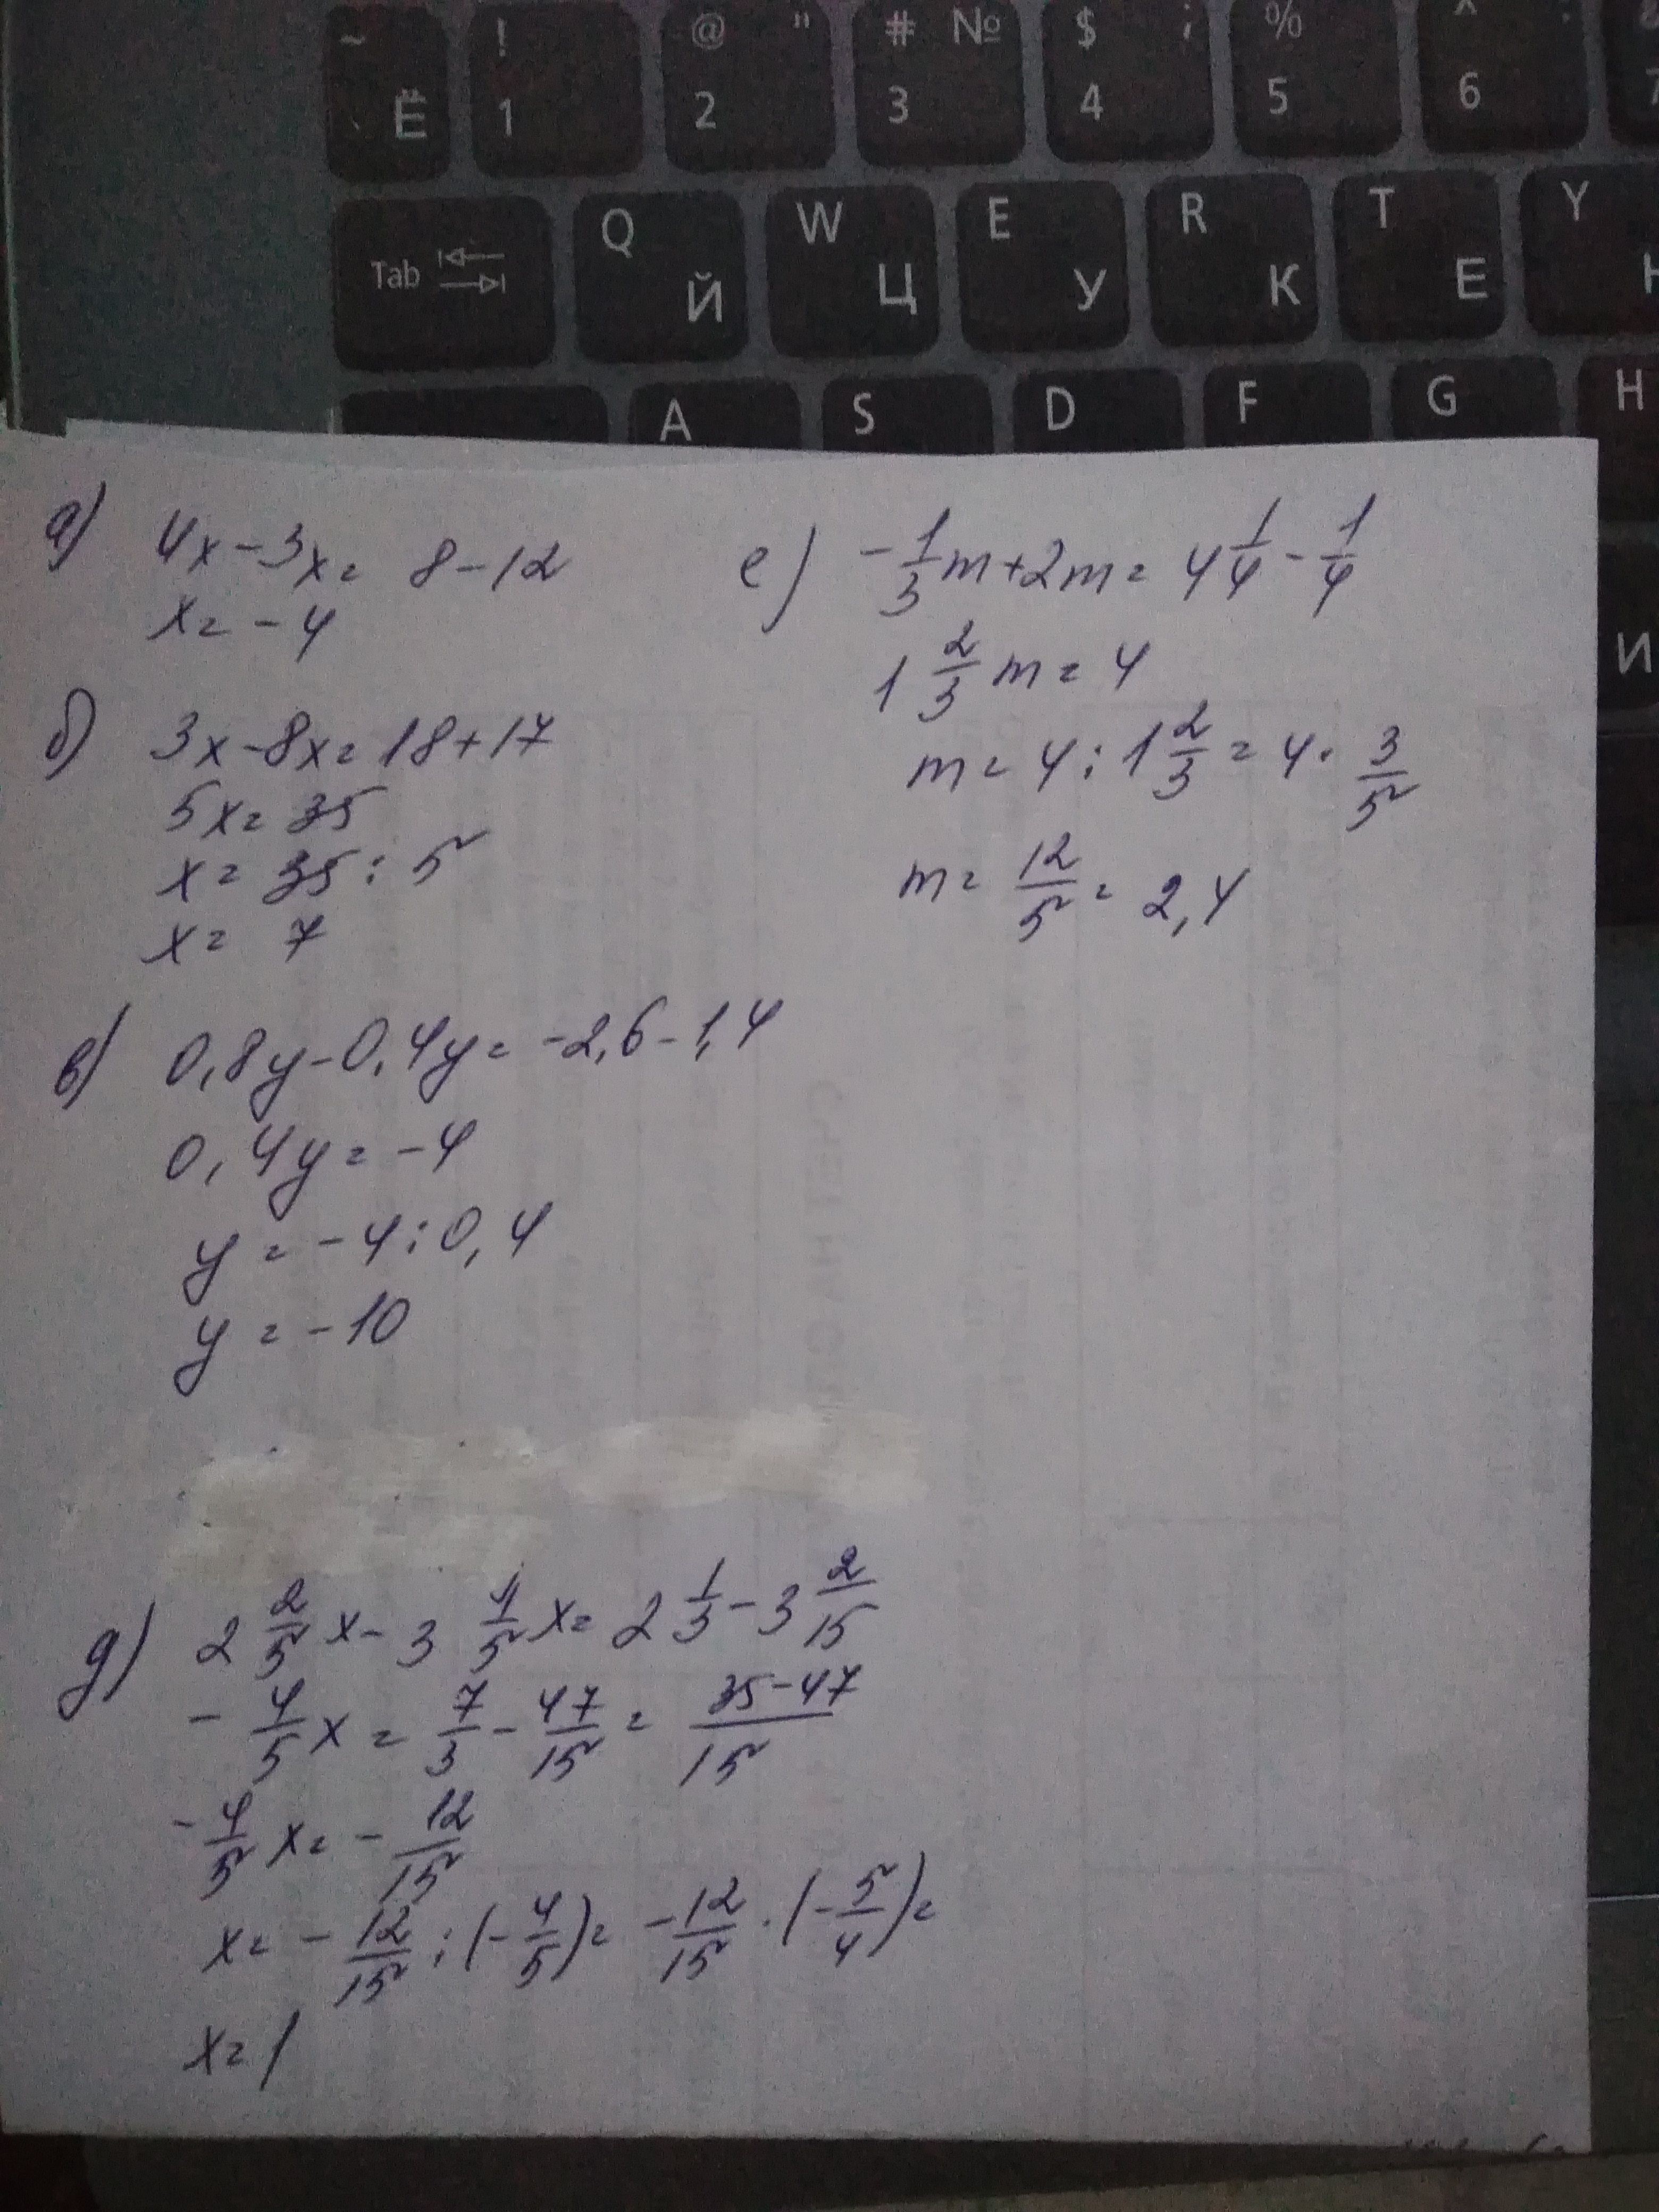 ~ Ё ! 1 @ " 2 # № 3 $ ; 4 % 5 ^ : 6 7
Tab Q Й W Ц E У R К T Е Y Н
A S D F G H
И
а) 4x-3x= 8-12
x= -4
б) 3x-8x=18+17
5x= 35
x= 35:5
x= 7
в) 0,8y-0,4y= -2,6-1,4
0,4y= -4
y= -4:0,4
y= -10
д) 2 2/5 x- 3 1/5 x= 2 1/3 - 3 2/15
- 4/5 x = 7/3 - 47/15 = 35-47/15
- 4/5 x= - 12/15
x= - 12/15 : (- 4/5)= - 12/15 · (- 5/4)=
x= 1
е) - 1/3 m+2m= 4 1/4 - 1/4
1 2/3 m= 4
m= 4 : 1 2/3 = 4 · 3/5
m= 12/5 = 2,4